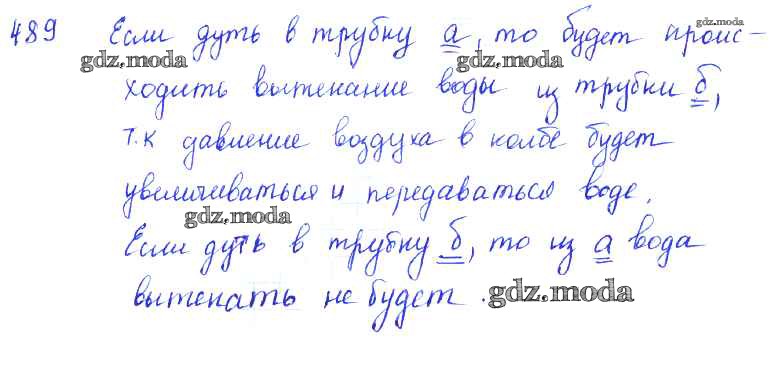 gdz.moda
489 Если дуть в трубку а, то будет проис-
gdz.moda gdz.moda
ходить вытекание воды из трубки б,
т.к давление воздуха в колбе будет
увеличиваться и передаваться воде.
gdz.moda
Если дуть в трубку б, то из а вода
вытекать не будет.
gdz.moda